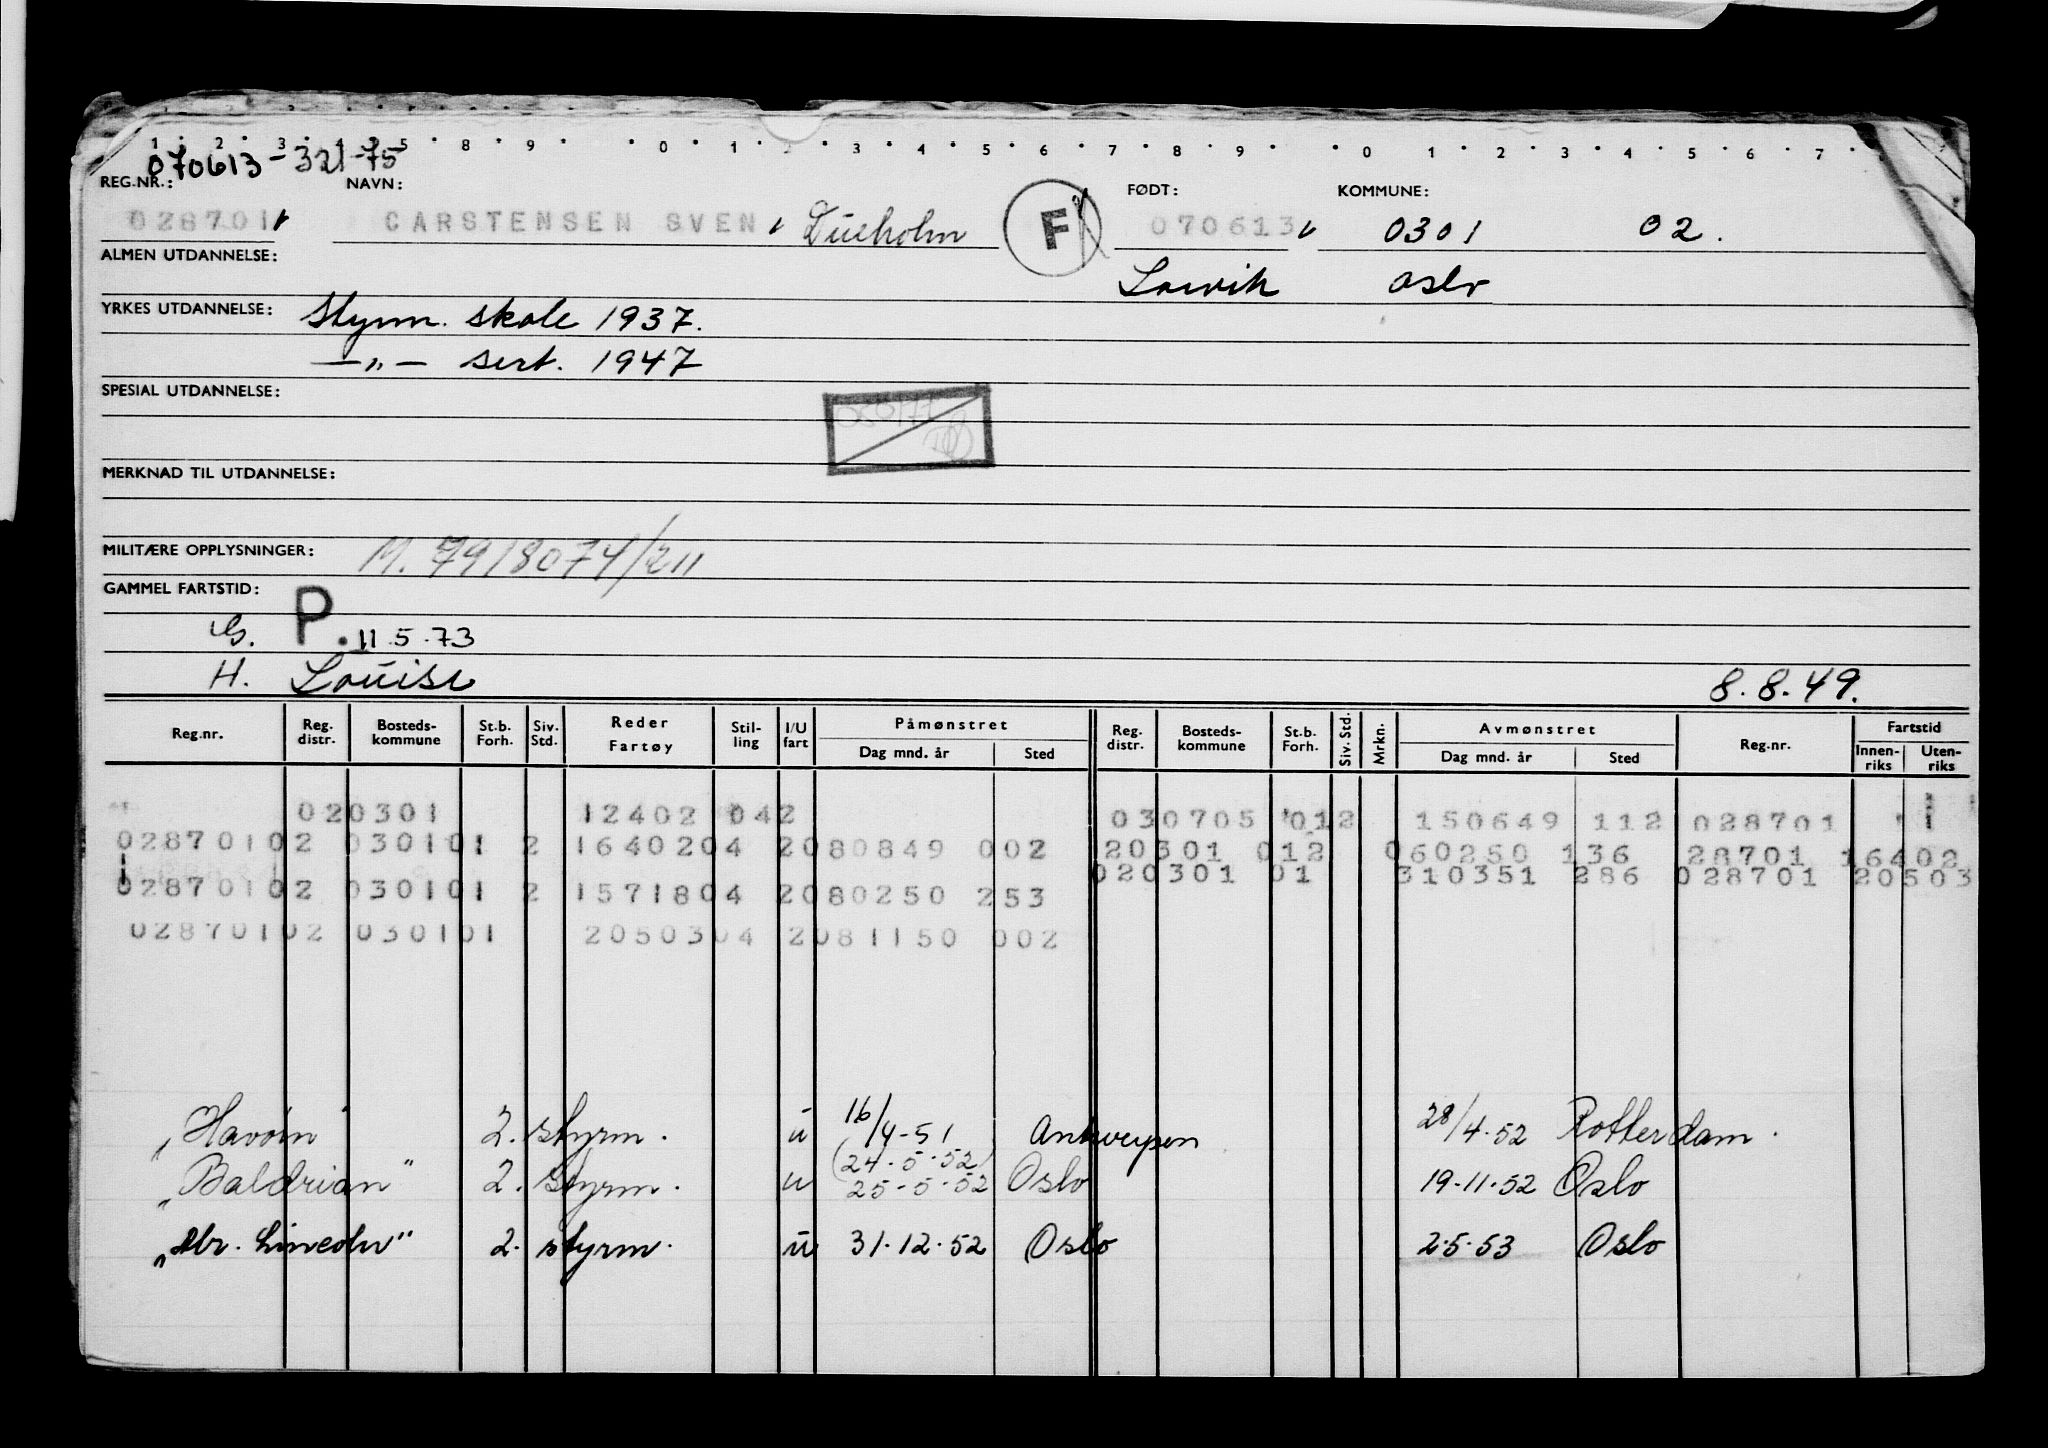 1 2 3 5 8 9 0 1 2 3 4 5 6 7 8 9 0 1 2 3 4 5 6 7
070613-321-75
REG.NR.: NAVN: FØDT: KOMMUNE:
028701 CARSTENSEN SVEN Dueholm F 070613 0301 02.
ALMEN UTDANNELSE: Larvik Oslo
YRKES UTDANNELSE: Styrm. skole 1937.
—„— sert. 1947
SPESIAL UTDANNELSE:
MERKNAD TIL UTDANNELSE:
MILITÆRE OPPLYSNINGER: M. 7918074/211
GAMMEL FARTSTID:
G. P. 11.5.73
H. Louise 8.8.49.
Reg.nr. Reg. distr. Bosteds-kommune St.b. Forh. Siv. Std. Reder Fartøy Stil-ling I/U fart Påmønstret Dag mnd. år Sted Reg. distr. Bosteds-kommune St.b. Forh. Siv. Std. Mrkn. Avmønstret Dag mnd. år Sted Reg.nr. Fartstid Innen-riks Uten-riks
020301 12402 042 030705 012 150649 112 028701
02870102 030101 2 1640204 2080849 002 20301 012 060250 136 28701 16402
02870102 030101 2 1571804 2080250 253 020301 01 310351 286 028701 20503
02870102 030101 2050304 2081150 002
„Havørn" 2. styrm. u 16/4-51 Antwerpen 28/4.52 Rotterdam.
(24.5.52)
„Baldrian" 2. styrm. u 25-5-52 Oslo 19.11.52 Oslo
„Abr. Lincoln" 2. styrm. u 31.12.52 Oslo 2.5.53 Oslo